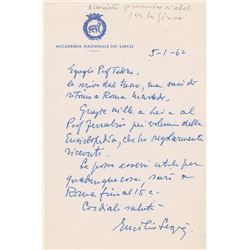 scienziato premio Nobel
per la fisica
ACCADEMIA NAZIONALE DEI LINCEI
5-1-62
Egregio Prof
le scrivo dal treno, ma sarò di
ritorno a Roma martedì.
Grazie mille a Lei e al
Prof Ferrabino per i volumi della
Enciclopedia, che ho regolarmente
ricevuti.
Se posso esserLi utile per
qualunque cosa sarò a
Roma fino al 15 c.
Cordiali saluti
Emilio Segrè